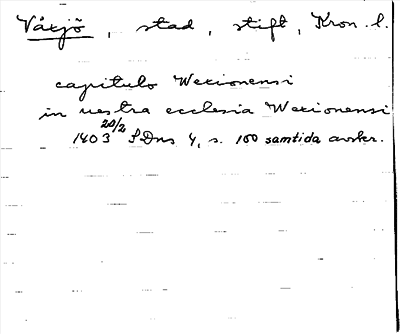 Växjö, stad, stift, Kron. l.
capitulo Wexionensi
in uestra ecclesia Wexionensi
1403 20/2 SDns 1, s. 160 samtida avskr.